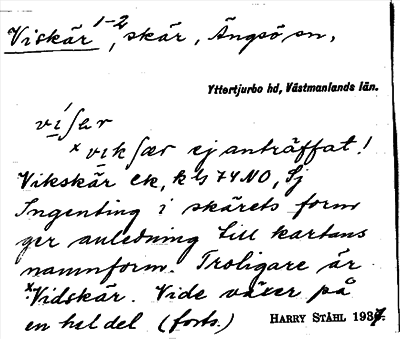 Viskär 1-2, skär, Ängsö sn,
Yttertjurbo hd, Västmanlands län.
víʃær
× vikʃær ej anträffat!
Vikskär Ek, kbl 74 NO, Sj
Ingenting i skärets form
ger anledning till kartans
namnform. Troligare är
×Vidskär. Vide växer på
en hel del (forts.)
HARRY STÅHL 1937.